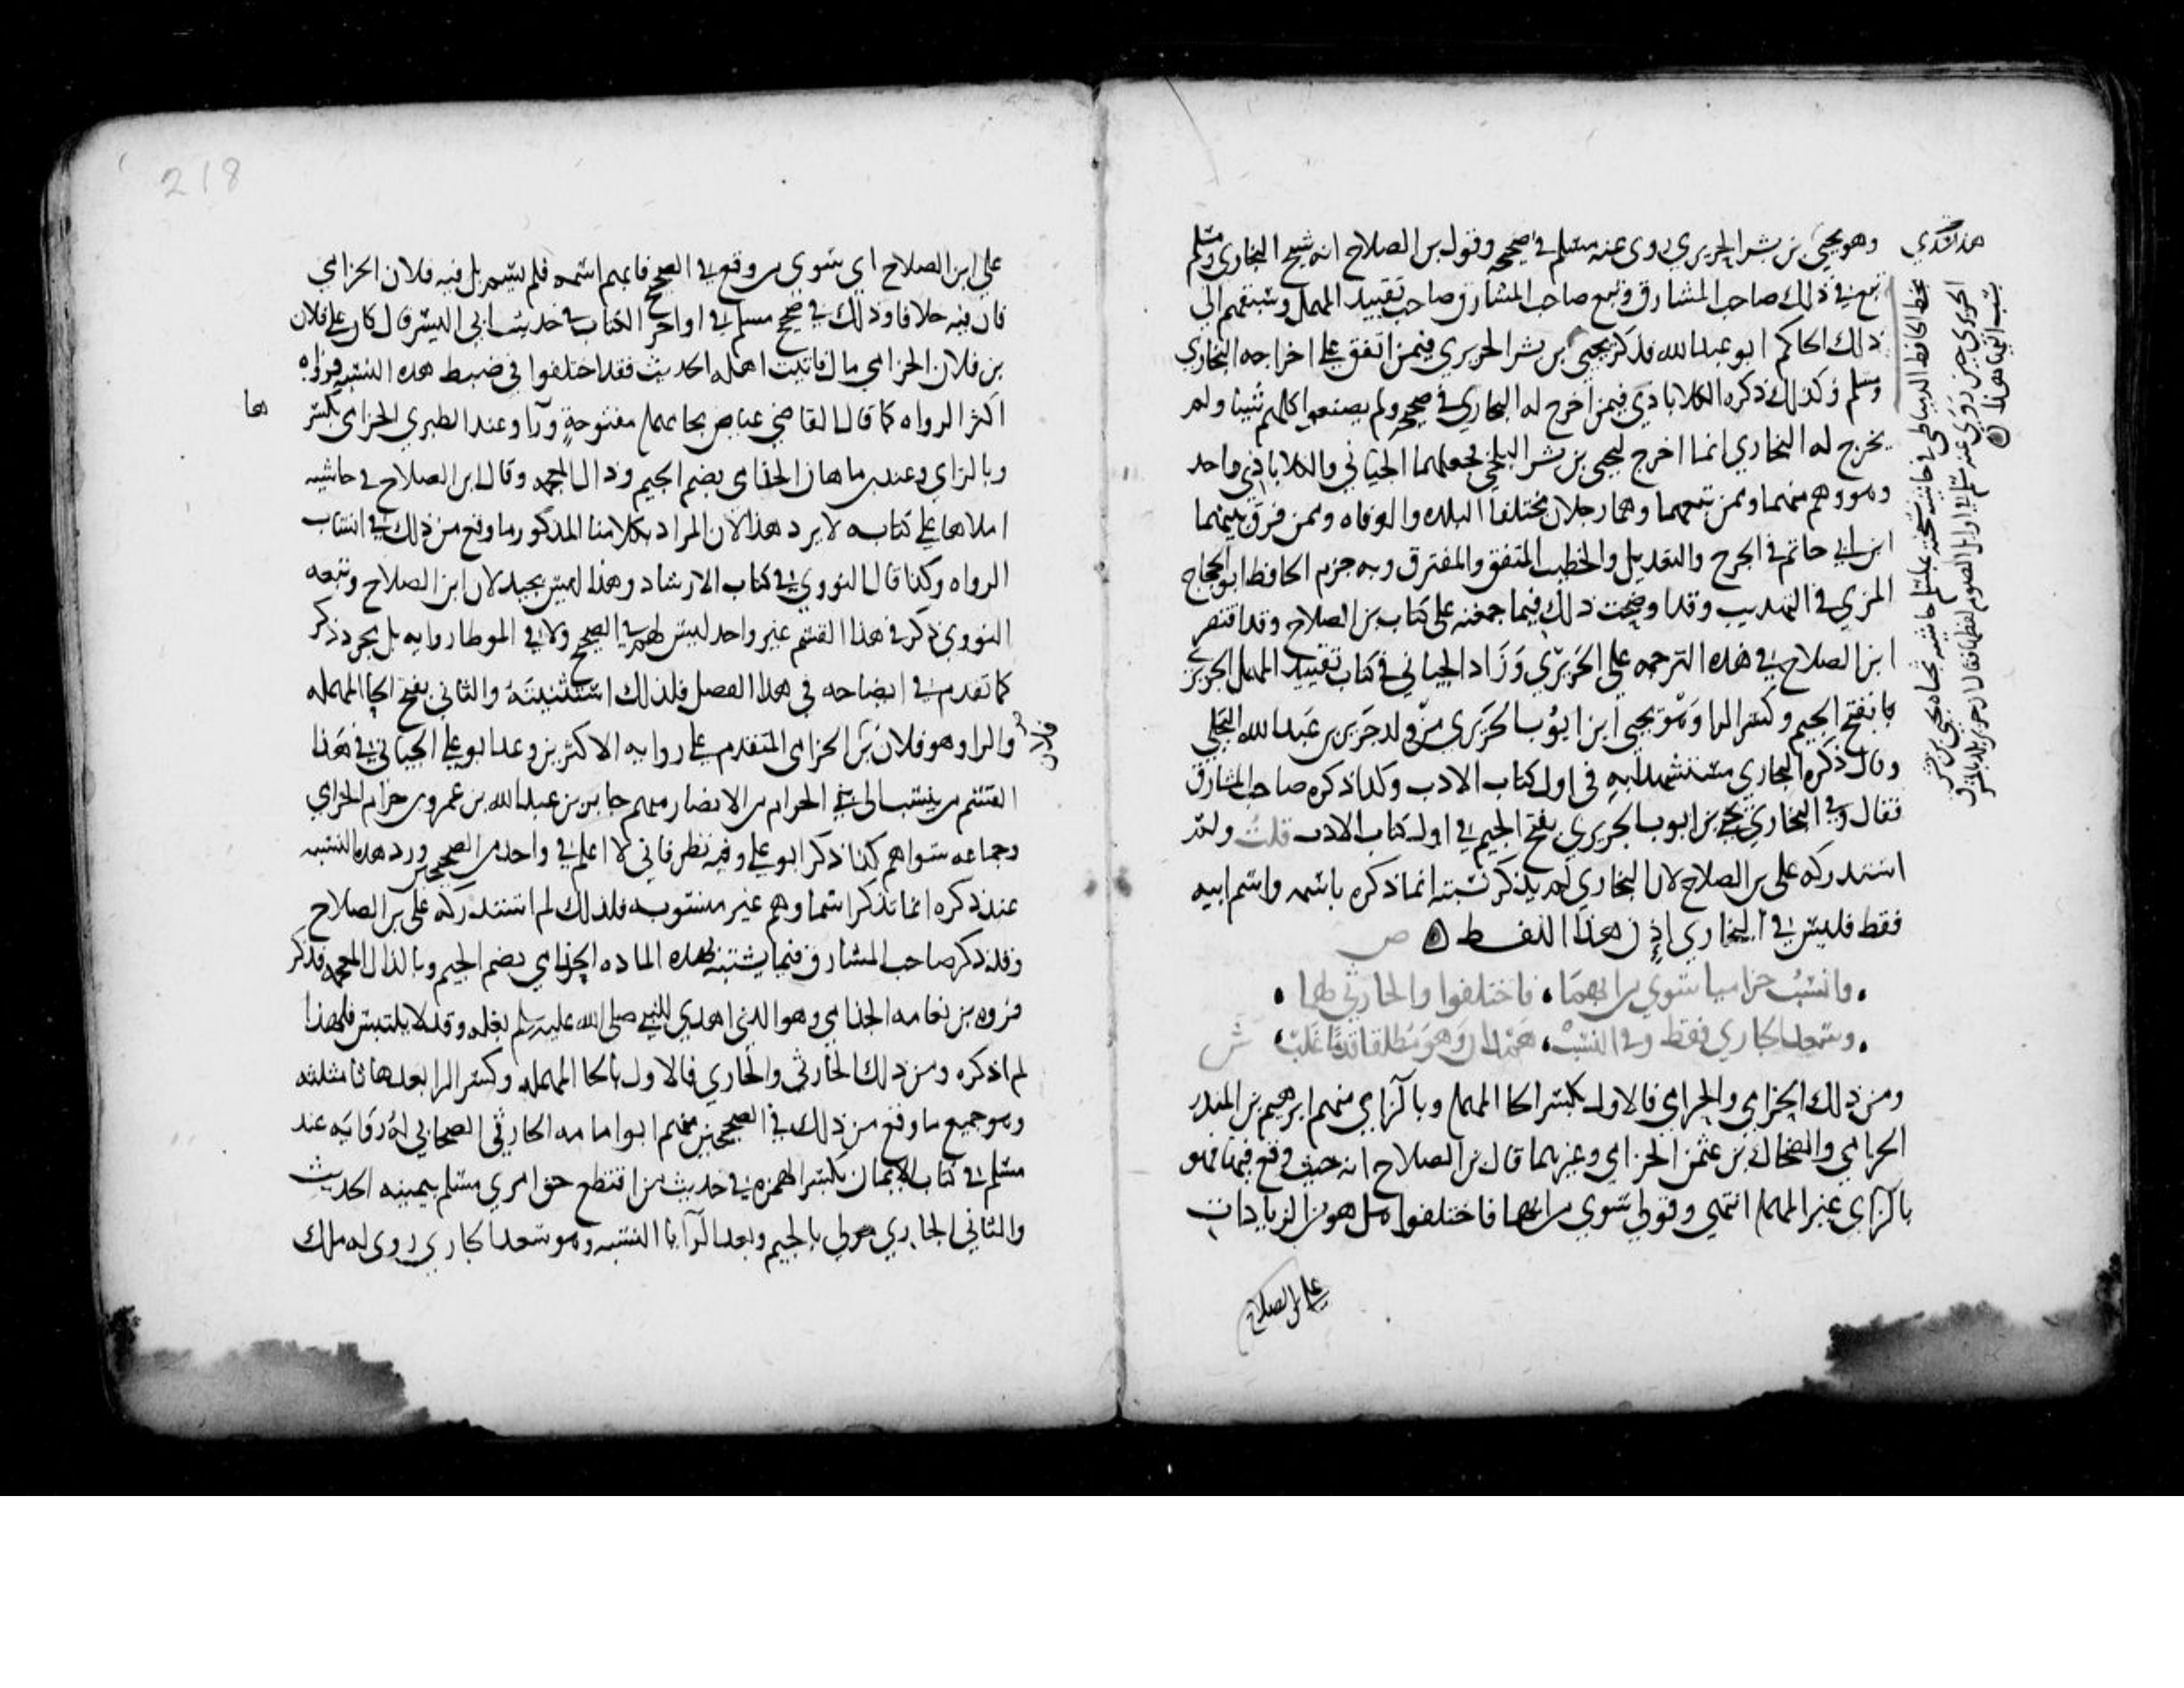 وهو يحيى بن بشر الحريري روى عنه مسلم في صحيحه وقول بن الصلاح انه شيخ البخاري ومسلم
تبع في ذلك صاحب المشارق وتبع صاحب المشارق صاحب تقييد المهمل وسبقهم الى
ذلك الحاكم ابو عبد الله فذكر يحيى بن بشر الحريري فيمن اتفق على اخراجه البخاري
ومسلم وكذلك ذكره الكلاباذي فيمن اخرج له البخاري في صحيحه ولم يصنعوا كلهم شيئا ولم
يخرج له البخاري انما اخرج ليحيى بن بشر البلخي فجعلهما الجياني والكلاباذي واحد
وهو وهم منهما وممن تبعهما وهما رجلان مختلفا البلده والوفاه وممن فرق بينهما
ابن ابي حاتم في الجرح والتعديل والخطيب المتفق والمفترق وبه جزم الحافظ ابو الحجاج
المزي في التهذيب وقد اوضحت ذلك فيما جمعته على كتاب بن الصلاح وقد اقتصر
ابن الصلاح في هذه الترجمه على الحريري وزاد الجياني في كتاب تقييد المهمل الجريري
بفتح الجيم وكسر الرا وهو يحيى ابن ايوب الجريري من ولد جرير بن عبد الله البجلي
وقال ذكره البخاري مستشهدا به في اول كتاب الادب وكذا ذكره صاحب المشارق
فقال وفي البخاري يحيى بن ايوب الجريري بفتح الجيم في اول كتاب الادب قلت ولم
استدركه على بن الصلاح لان البخاري لم يذكر نسبته انما ذكره باسمه واسم ابيه
فقط فليس في البخاري اذن هذا اللفظ ص
وانسب حزاميا سوى من ابهما فاختلفوا والحارثي لهما
وسعد الجاري فقط وفي النسب همدان وهو مطلقا قدما غلب ش
ومن ذلك الحزامي والحرامي فالاول بكسر الحا المهمله وبالزاي منهم ابرهيم بن المنذر
الحزامي والضحاك بن عثمن الحزامي وغيرهما قال بن الصلاح انه حيث وقع فيها فهو
بالزاي غير المهمله انتهى وقولي سوى من ابهما فاختلفوا هو من الزيادات
على بن الصلاح
بخط الحافظ الدمياطي في حاشية نسخته بمسلم حاشيه تجاه يحيى بن بشر
الحريري حين روى عنه مسلم في اول الصوم لفظها فقال
218
على ابن الصلاح اي سوى من وقع في الصحيح فابهم اسمه فلم يسم بل فيه فلان الحزامي
فان فيه خلافا وذلك في صحيح مسلم في اواخر الكتاب في حديث ابي اليسر قال كان لي على فلان
بن فلان الحزامي مال فاتيت اهله الحديث فقد اختلفوا في ضبط هذه النسبه فرواه
اكثر الرواه كما قال القاضي عياض بحا مهمله مفتوحة ورآ وعند الطبري الحزامي بكسرها
وبالزاي وعند بن ماهان الجذامي بضم الجيم وذال معجمه وقال ابن الصلاح في حاشيه
املاها على كتابه لا يرد هذا لان المراد بكلامنا المذكور ما وقع من ذلك في انساب
الرواه وكذا قال النووي في كتاب الارشاد وهذا ليس بجيد لان ابن الصلاح وتبعه
النووي ذكر في هذا القسم غير واحد ليس لهم في الصحيح ولا في الموطا روايه بل مجرد ذكر
كما تقدم في ايضاحه في هذا الفصل فلذلك استثنيته والثاني بفتح الحا المهمله
والرا وهو فلان بن فلان الحرامي المتقدم على روايه الاكثرين وعد ابو علي الجياني في هذا
القسم من ينسب الى بني الحرام من الانصار منهم جابر بن عبد الله بن عمرو بن حرام الحرامي
وجماعه سواهم كذا ذكر ابو علي وفيه نظر فاني لا اعلم في واحد من الصحيحين ورد هذه النسبه
عند ذكره انما تذكر اسما وهم غير منسوبه فلذلك لم استدركه على بن الصلاح
وقد ذكر صاحب المشارق فيما يشتبه بهذه الماده الجذامي بضم الجيم وبالذال المعجمه فذكر
فروه بن نعامه الجذامي وهو الذي اهدى للنبي صلى الله عليه وسلم بغله وقد لا يلتبس فلهذا
لم اذكره ومن ذلك الحارثي والجاري فالاول بالحا المهمله وكسر الرا بعدها ثا مثلثه
وهو جميع ما وقع من ذلك في الصحيحين منهم ابو امامه الحارثي الصحابي له روايه عند
مسلم في كتاب الايمان بكسر الهمزه في حديث من اقتطع حق امرئ مسلم بيمينه الحديث
والثاني الجاري بالجيم وبعد الرآ يا النسبه وهو سعد الجاري روى له ملك